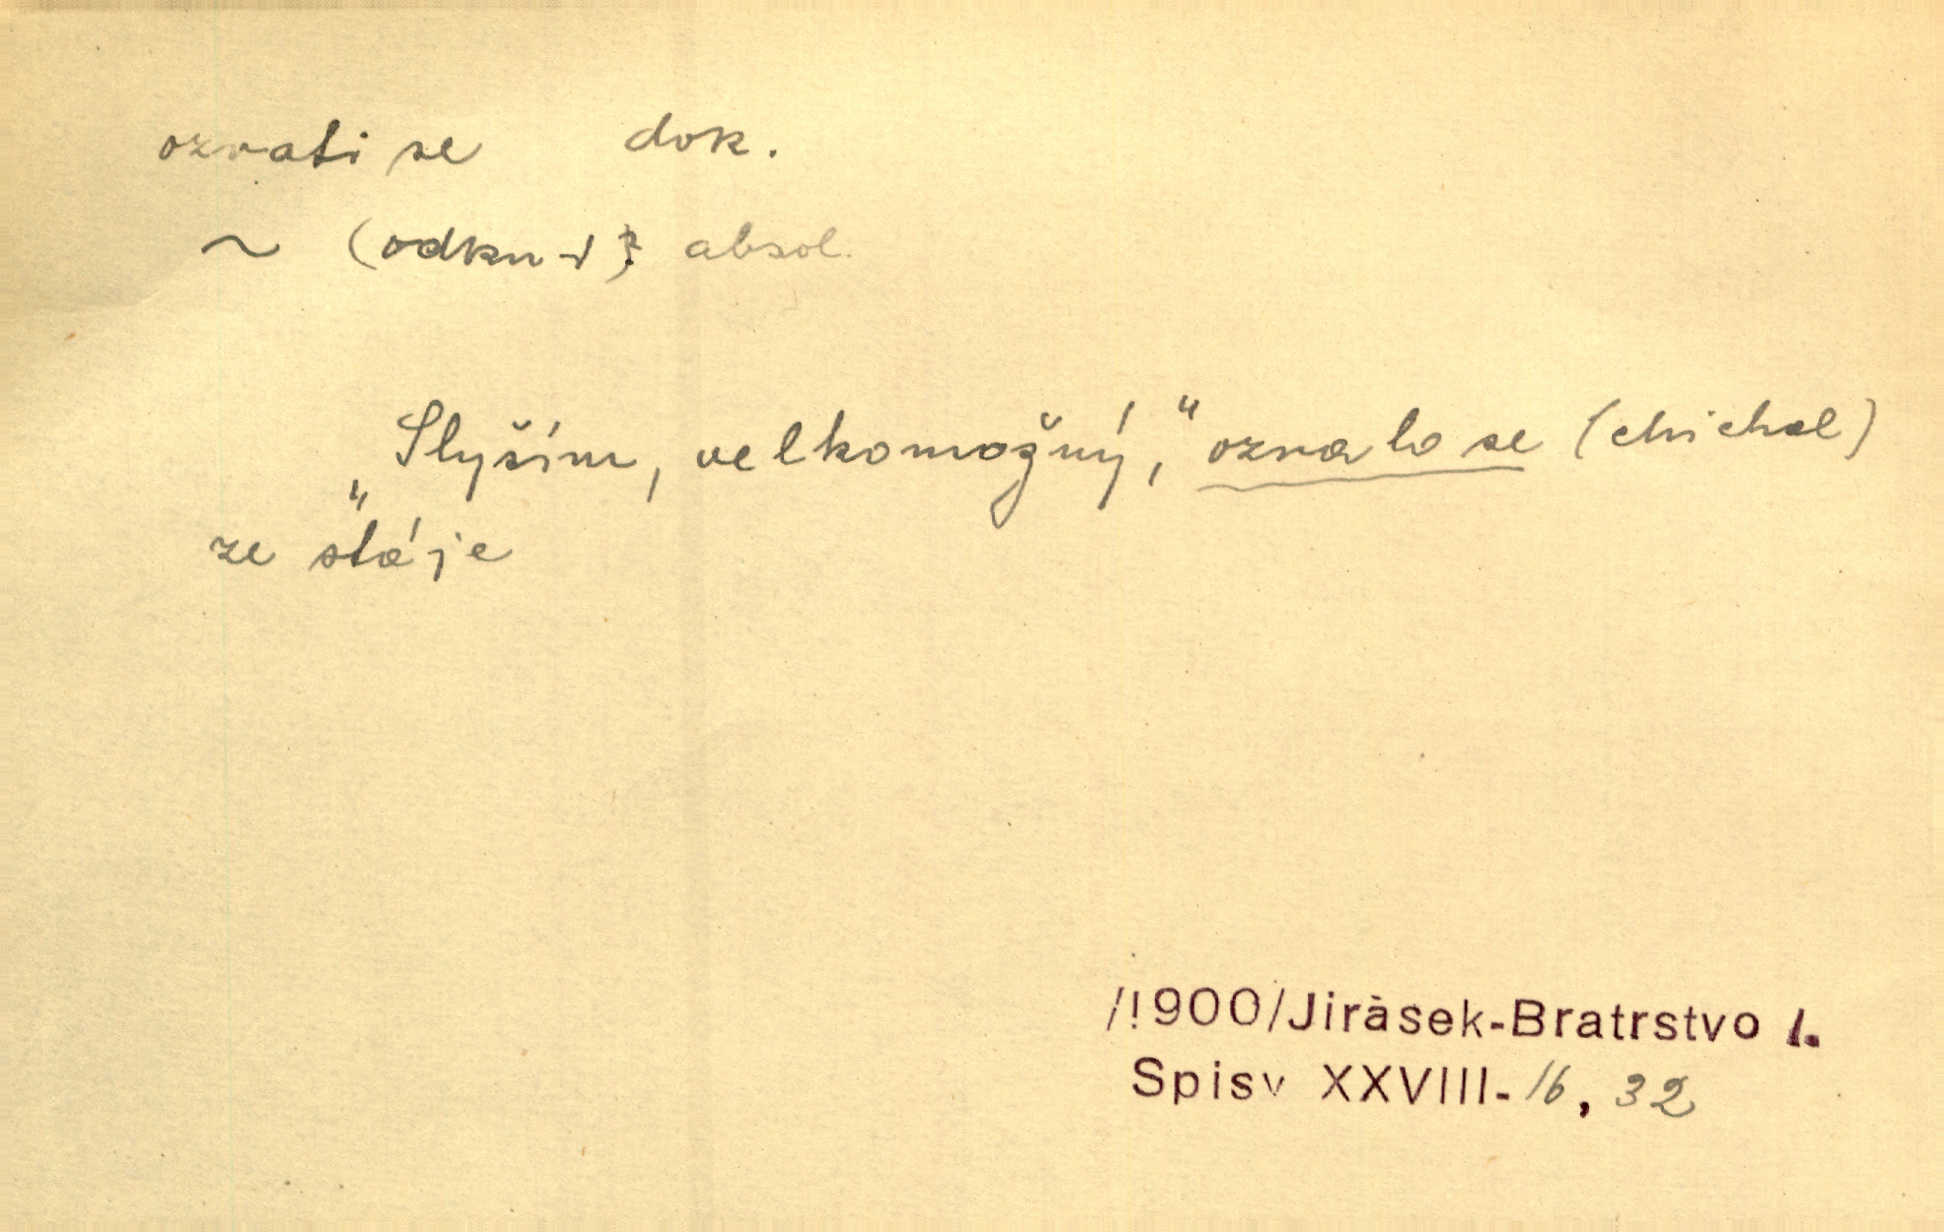 ozvati se dok.
~ (odkud) absol.
„Slyším, velkomožný,“ ozvalo se (chichol)
ze stáje
/1900/Jirásek-Bratrstvo I.
Spisy XXVIII-16, 32